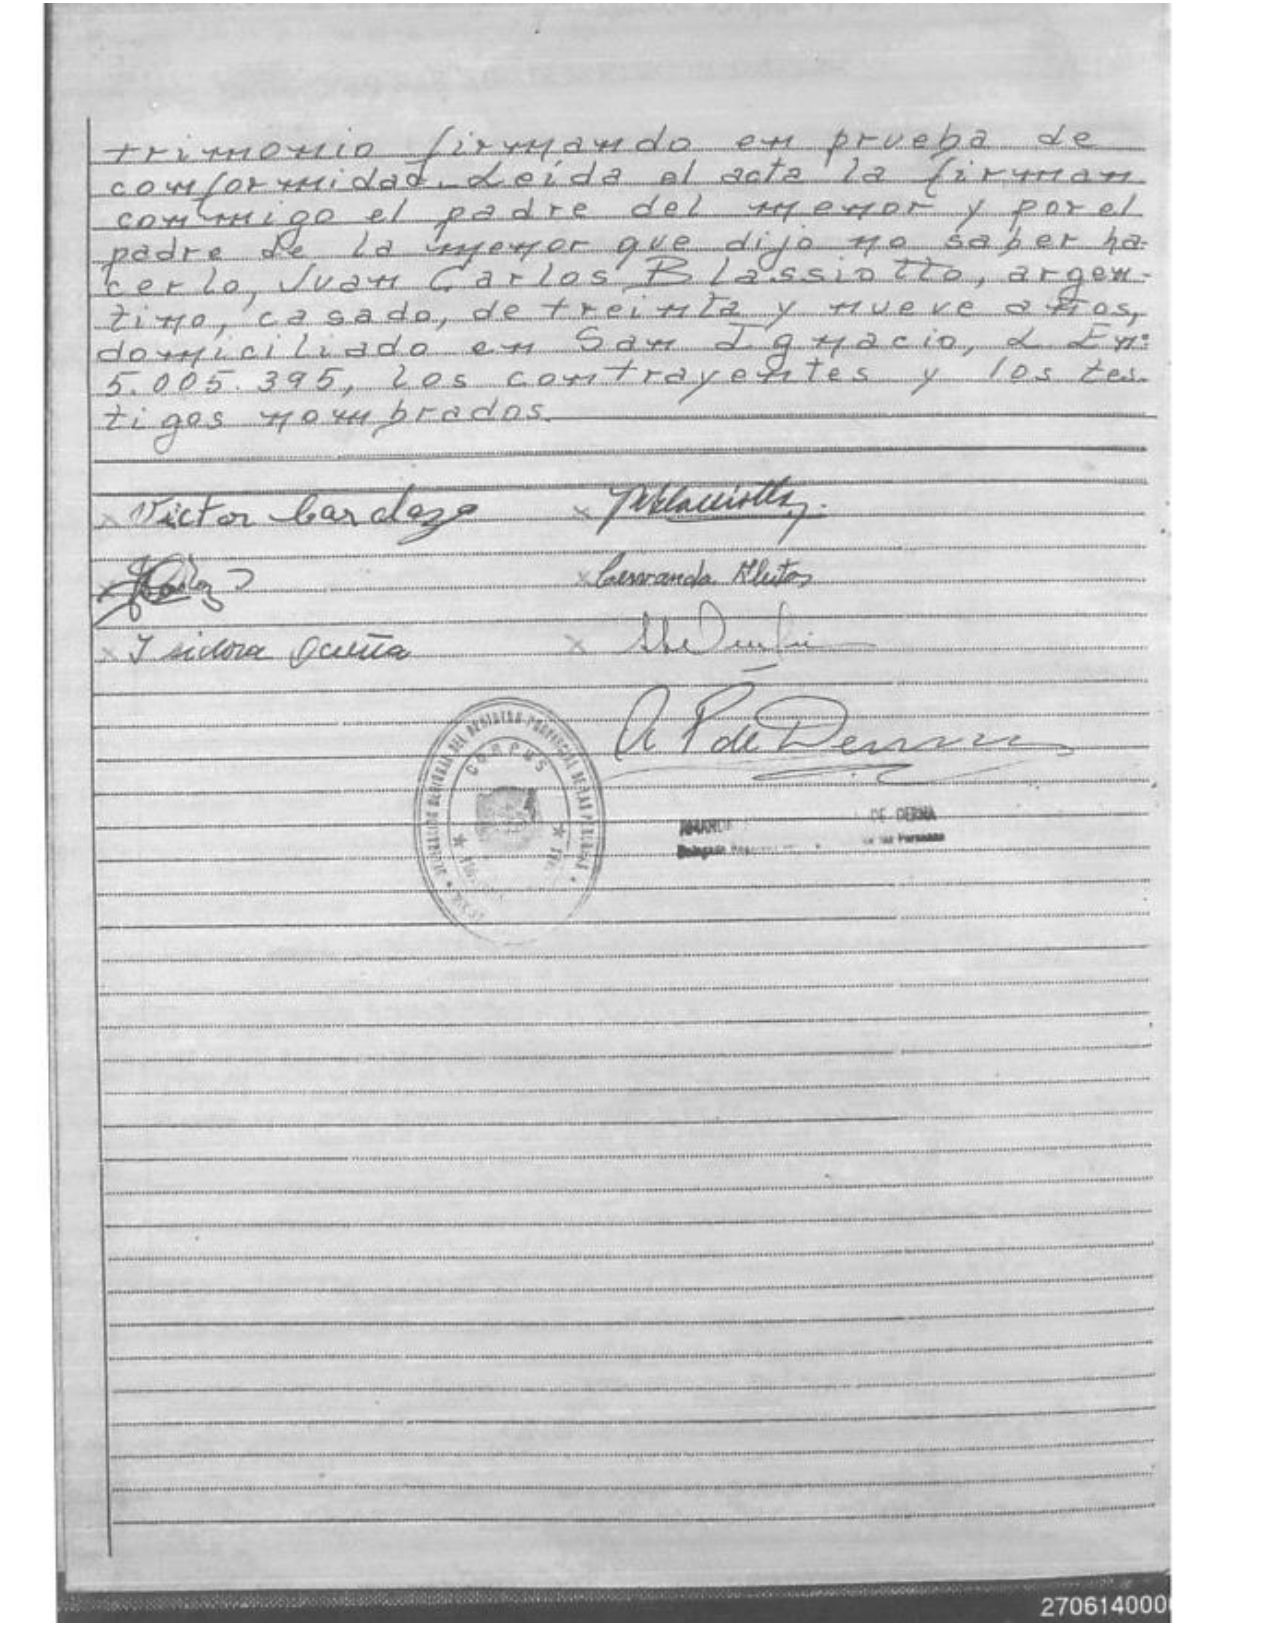 trimonio firmando en prueba de
conformidad. Leída el acta la firman
conmigo el padre del menor y por el
padre de la menor que dijo no saber ha-
cerlo, Juan Carlos Blassiotto, argen-
tino, casado, de treinta y nueve años,
domiciliado en San Ignacio, L En:
5.005.395, los contrayentes y los tes-
tigos nombrados.
x Victor Cardozo x
x
x Isidora Acuña x
A P de Derna
CORPUS
DE DERNA
de las Personas
270614000